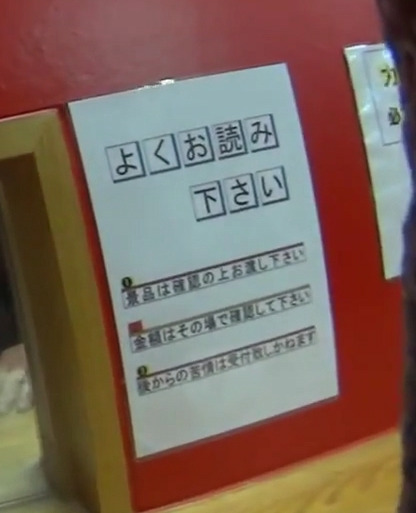 よくお読み
下さい
景品は確認の上お渡し下さい
金額はその場で確認して下さい
後からの苦情は受付致しかねます